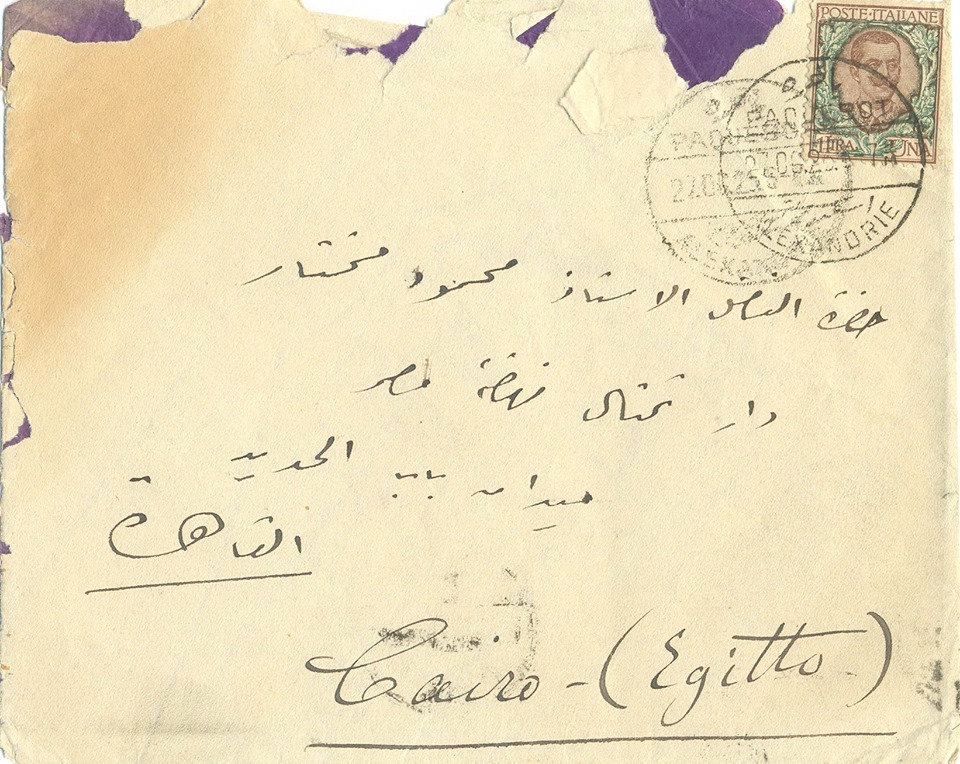 POSTE·ITALIANE
LIRA UNA
PAQUEBOT
27.OC.25
ALEXANDRIE
حضرة الفاضل الاستاذ محمود مختار
دار تمثال نهضة مصر
ميدان باب الحديد
القاهرة
Cairo - (Egitto)